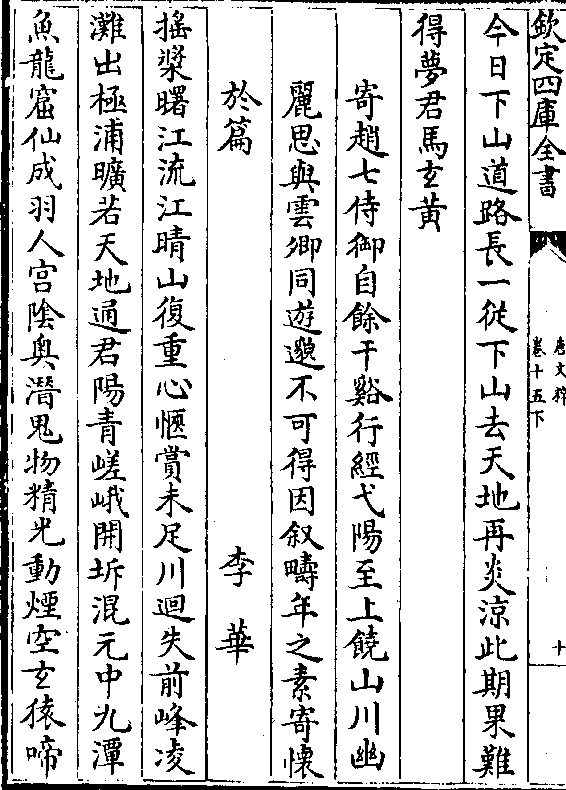 欽定四庫全書
唐文粹
卷十五下
十
今日下山道路長一從下山去天地再炎涼此期果難
得夢君馬玄黄
寄趙七侍御自餘干谿行經弋陽至上饒山川幽
麗思與雲卿同遊邈不可得因叙疇年之素寄懷
於篇
李華
搖槳曙江流江晴山復重心愜賞未足川迴失前峰凌
灘出極浦曠若天地通君陽青嵯峨開坼混元中九潭
魚龍窟仙成羽人宫陰奥潛鬼物精光動煙空玄猿啼